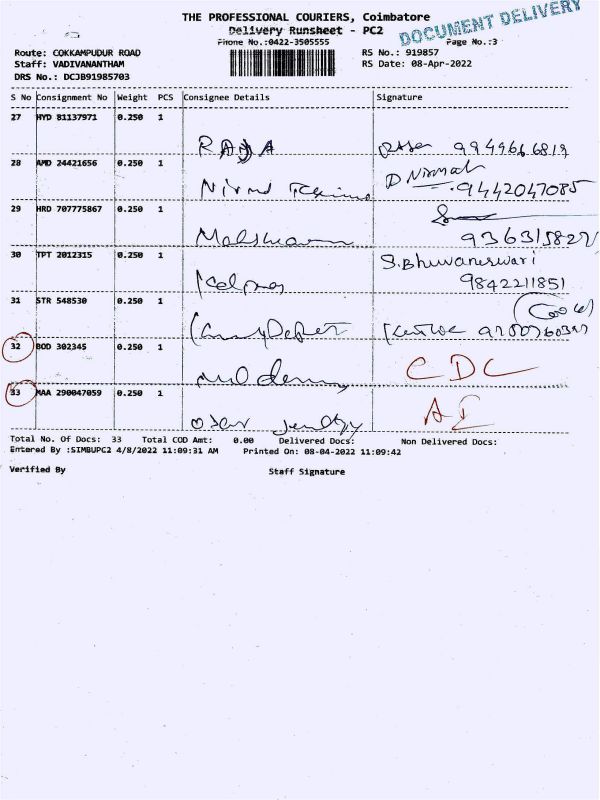 THE PROFESSIONAL COURIERS, Coimbatore
Delivery Runsheet - PC2
DOCUMENT DELIVERY
Phone No.:0422-3505555
Page No.:3
Route: COKKAMPUDUR ROAD
RS No.: 919857
Staff: VADIVANANTHAM
RS Date: 08-Apr-2022
DRS No.: DCJB91985703
S No Consignment No Weight PCS Consignee Details Signature
27 HYD 81137971 0.250 1
RAJA
28 AMD 24421656 0.250 1
D Nirmal
9442047085
29 HRD 707775867 0.250 1
30 TPT 2012315 0.250 1
S.Bhuvaneswari
9842211851
31 STR 548530 0.250 1
32 BOD 302345 0.250 1
CDC
33 MAA 290047059 0.250 1
Total No. Of Docs: 33 Total COD Amt: 0.00 Delivered Docs: Non Delivered Docs:
Entered By :SIMBUPC2 4/8/2022 11:09:31 AM Printed On: 08-04-2022 11:09:42
Verified By Staff Signature